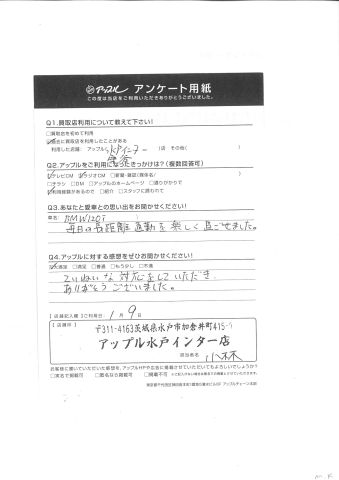 アップル アンケート用紙
この度は当店をご利用いただきありがとうございました。
Q1.買取店利用について教えて下さい!
□買取店を初めて利用
過去に買取店を利用したことがある
利用した店舗: アップル 水戸インター 店 その他( )
Q2.アップルをご利用になったきっかけは?(複数回答可)
テレビCM ラジオCM □新聞・雑誌(媒体名/ )
□チラシ □DM □アップルのホームページ □通りがかりで
利用経験があるので □紹介 □スタッフに誘われて
Q3.あなたと愛車との思い出をお聞かせください!
車名: BMW120i
毎日の長距離通勤を楽しく過ごせました。
Q4.アップルに対する感想をぜひお聞かせください!
大満足 □満足 □普通 □もう少し □不満
ていねいな対応をしていただき
ありがとうございました。
[店舗記入欄]ご利用日: 1月9日
[店舗印]
〒311-4163茨城県水戸市加倉井町415-
アップル水戸インター店
担当者名 小林
お客様に書いていただいた感想を、アップルHPや広告に掲載させていただいてもよろしいでしょうか?
□実名で掲載可 □匿名なら掲載可 □掲載不可